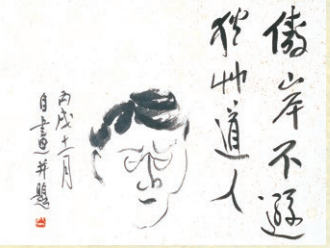 傲岸不遜
艸道人
丙戌十一月
自畫并題